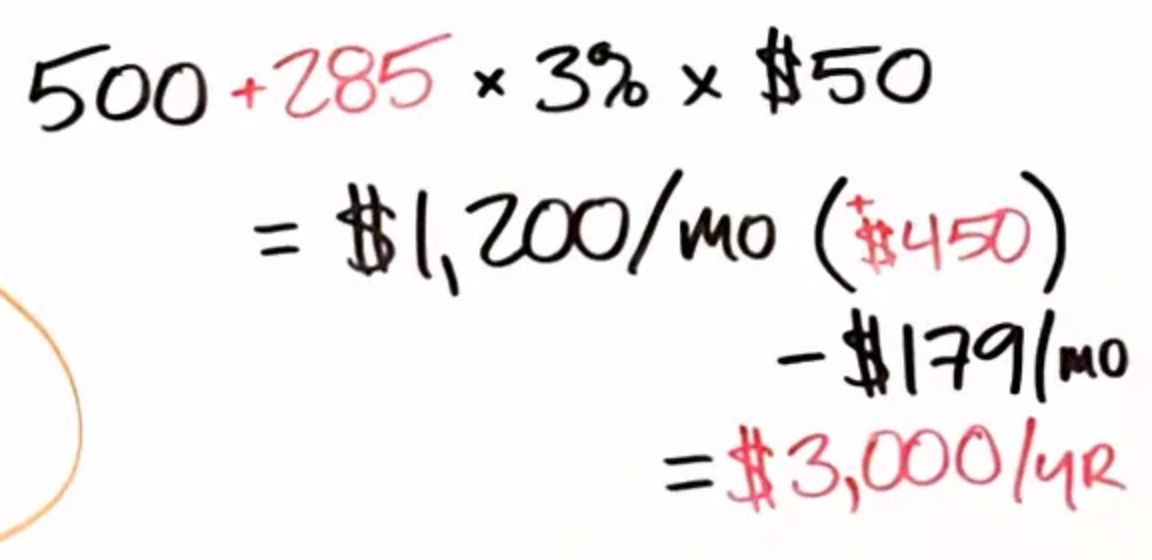 500 +285 × 3% × $50
= $1,200/mo (+$450)
- $179/mo
= $3,000/YR